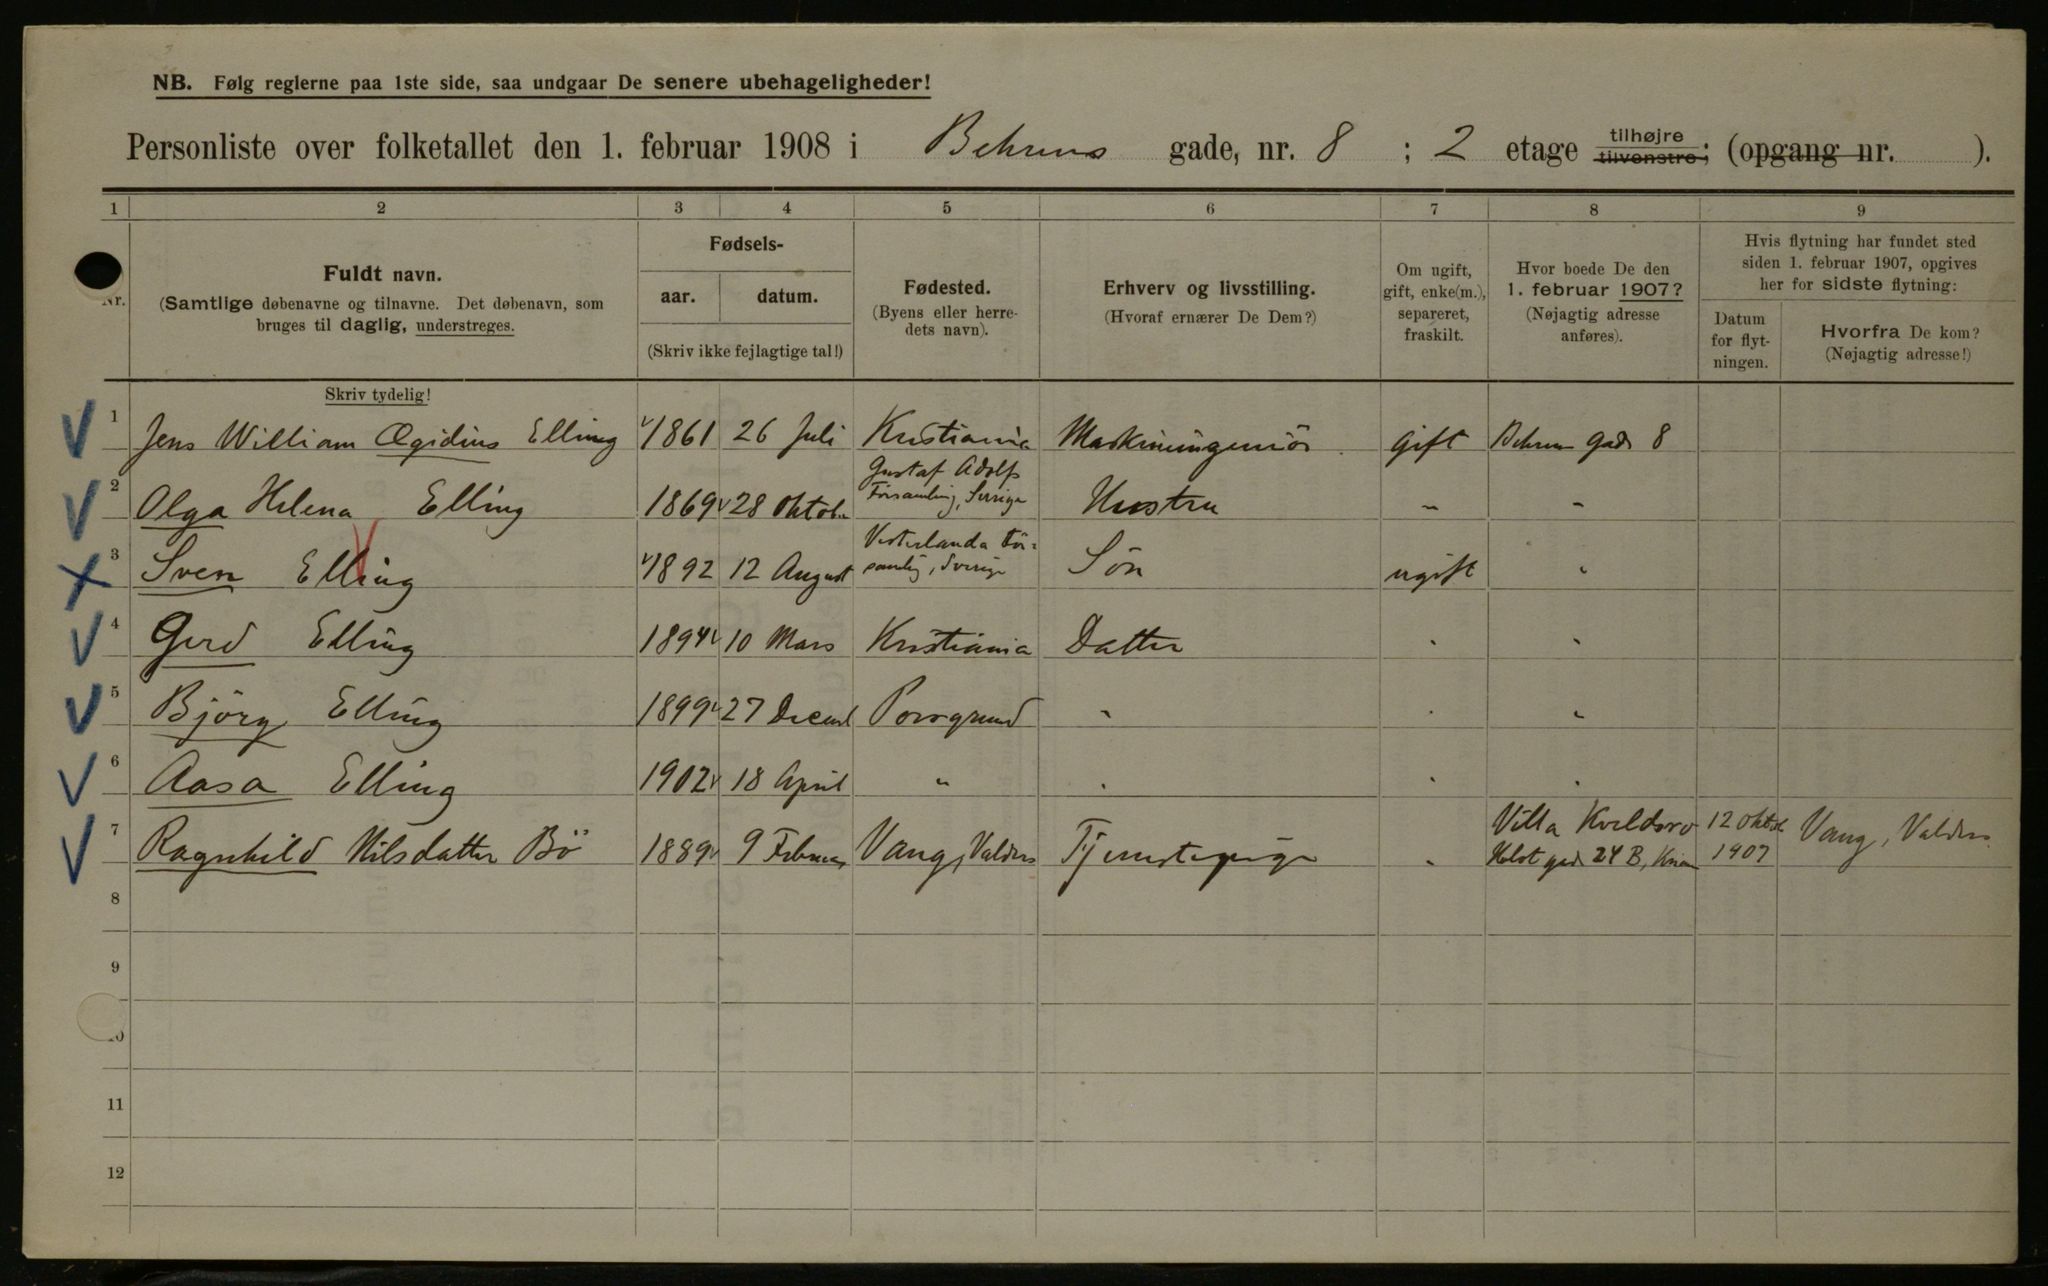 NB. Følg reglerne paa 1ste side, saa undgaar De senere ubehageligheder!
Personliste over folketallet den 1. februar 1908 i Behrens gade, nr. 8 ; 2 etage tilhøjre tilvenstre; (opgang nr. ).
1 2 3 4 5 6 7 8 9
Nr.
Fuldt navn.
(Samtlige døbenavne og tilnavne. Det døbenavn, som
bruges til daglig, understreges.
Fødsels-
aar. datum.
(Skriv ikke fejlagtige tal!)
Fødested.
(Byens eller herre-
dets navn).
Erhverv og livsstilling.
(Hvoraf ernærer De Dem?)
Om ugift,
gift, enke(m.),
separeret,
fraskilt.
Hvor boede De den
1. februar 1907?
(Nøjagtig adresse
anføres).
Hvis flytning har fundet sted
siden 1. februar 1907, opgives
her for sidste flytning:
Datum
for flyt-
ningen.
Hvorfra De kom?
(Nøjagtig adresse!)
Skriv tydelig!
1 Jens William Ægidius Elling 1861 26 Juli Kristiania Maskiningeniør gift Behrens gade 8
2 Olga Helena Elling 1869 28 Oktober Gustaf Adolfs Församling, Sverige Hustru " "
3 Sven Elling 1892 12 August Vesterlanda För-
samlig, Sverige Sön ugift "
4 Gerd Elling 1894 10 Mars Kristiania Datter " "
5 Björg Elling 1899 27 Decemb Porsgrund " " "
6 Aasa Elling 1902 18 April " " " "
7 Ragnhild Nilsdatter Bö 1889 9 Februar Vang, Valders Tjenestepige " Villa Kveldsro
Holst gade 24 B, Kria 12 Oktob.
1907 Vang, Valders
8
9
10
11
12